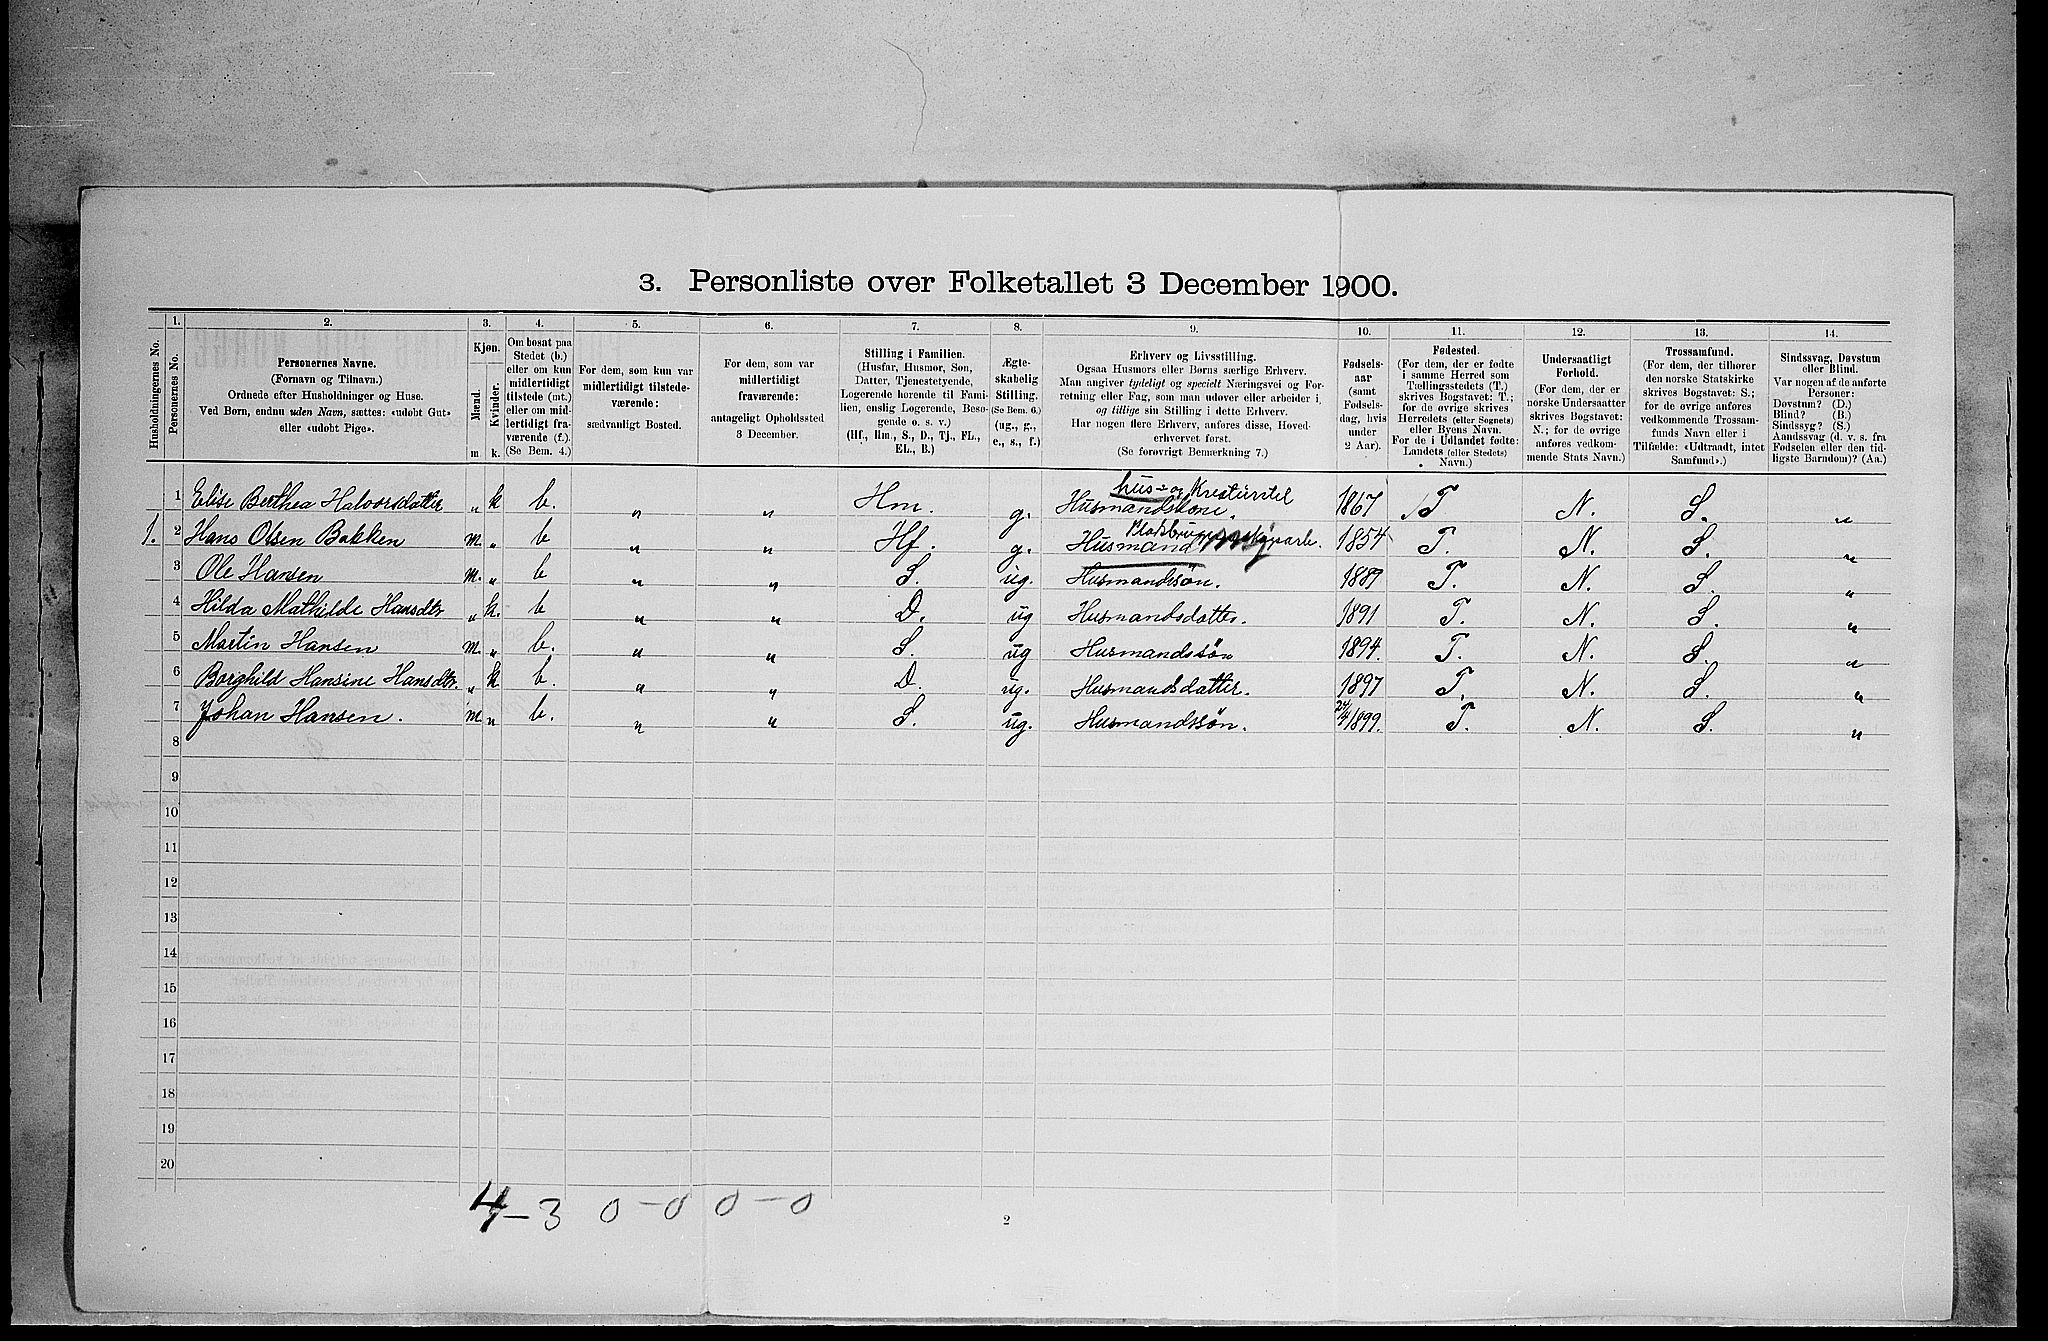 3. Personliste over Folketallet 3 December 1900.
Husholdningernes No.
1.
Personernes No.
2.
Personernes Navne.
(Fornavn og Tilnavn.)
Ordnede efter Husholdninger og Huse.
Ved Børn, endnu uden Navn, sættes: «udøbt Gut»
eller «udøbt Pige».
3.
Kjøn.
Mænd.
Kvinder.
m k.
4.
Om bosat paa
Stedet (b.)
eller om kun
midlertidigt
tilstede (mt.)
eller om mid-
lertidigt fra-
værende (f.).
(Se Bem. 4.)
5.
For dem, som kun var
midlertidigt tilstede-
værende:
sædvanligt Bosted.
6.
For dem, som var
midlertidigt
fraværende:
antageligt Opholdssted
3 December.
7.
Stilling i Familien.
(Husfar, Husmor, Søn,
Datter, Tjenestetyende,
Logerende hørende til Fami-
lien, enslig Logerende, Besø-
gende o. s. v.)
(Hf., Hm., S., D., Tj., FL.,
EL., B.)
8.
Ægte-
skabelig
Stilling.
(Se Bem. 6.)
(ug., g.,
e., s., f.)
9.
Erhverv og Livsstilling.
Ogsaa Husmors eller Børns særlige Erhverv.
Man angiver tydeligt og specielt Næringsvei og For-
retning eller Fag, som man udøver eller arbeider i,
og tillige sin Stilling i dette Erhverv.
Har nogen flere Erhverv, anføres disse, Hoved-
erhvervet først.
(Se forøvrigt Bemærkning 7.)
10.
Fødsels-
aar
(samt
Fødsels-
dag, hvis
under
2 Aar).
11.
Fødested.
(For dem, der er fødte
i samme Herred som
Tællingsstedets (T.)
skrives Bogstavet: T.;
for de øvrige skrives
Herredets (eller Sognets)
eller Byens Navn.
For de i Udlandet fødte:
Landets (eller Stedets)
Navn.)
12.
Undersaatligt
Forhold.
(For dem, der er
norske Undersaatter
skrives Bogstavet:
N.; for de øvrige
anføres vedkom-
mende Stats Navn.)
13.
Trossamfund.
(For dem, der tilhører
den norske Statskirke
skrives Bogstavet: S.;
for de øvrige anføres
vedkommende Trossam-
funds Navn eller i
Tilfælde: «Udtraadt, intet
Samfund».)
14.
Sindssvag, Døvstum
eller Blind.
Var nogen af de anførte
Personer:
Døvstum? (D.)
Blind? (B.)
Sindssyg? (S.)
Aandssvag (d. v. s. fra
Fødselen eller den tid-
ligste Barndom)? (Aa.)
hus- og Kreaturstel
1 Elise Berthea Halvorsdatter „ k b. „ „ Hm. g. Husmandskone. 1867 T N. S. „
1. 2 Hans Olsen Bakken m. „ b „ „ Hf. g. Husmand 1854 T. N. S. „
3 Ole Hansen m. „ b „ „ S. ug. Husmandssøn. 1889 T. N. S. „
4 Hilda Mathilde Hansdtr „ k. b „ „ D. ug Husmandsdatter. 1891 T. N. S. „
5 Martin Hansen m. „ b. „ „ S. ug Husmandssøn 1894. T. N. S. „
6 Borghild Hansine Hansdtr. „ k b. „ „ D. ug. Husmandsdatter. 1897 T. N. S. „
7 Johan Hansen. m „ b. „ „ S. ug. Husmandssøn. 1899. T. N. S. „
8
9
10
11
12
13
14
15
16
17
18
19
20
4-3 0-0 0-0
2